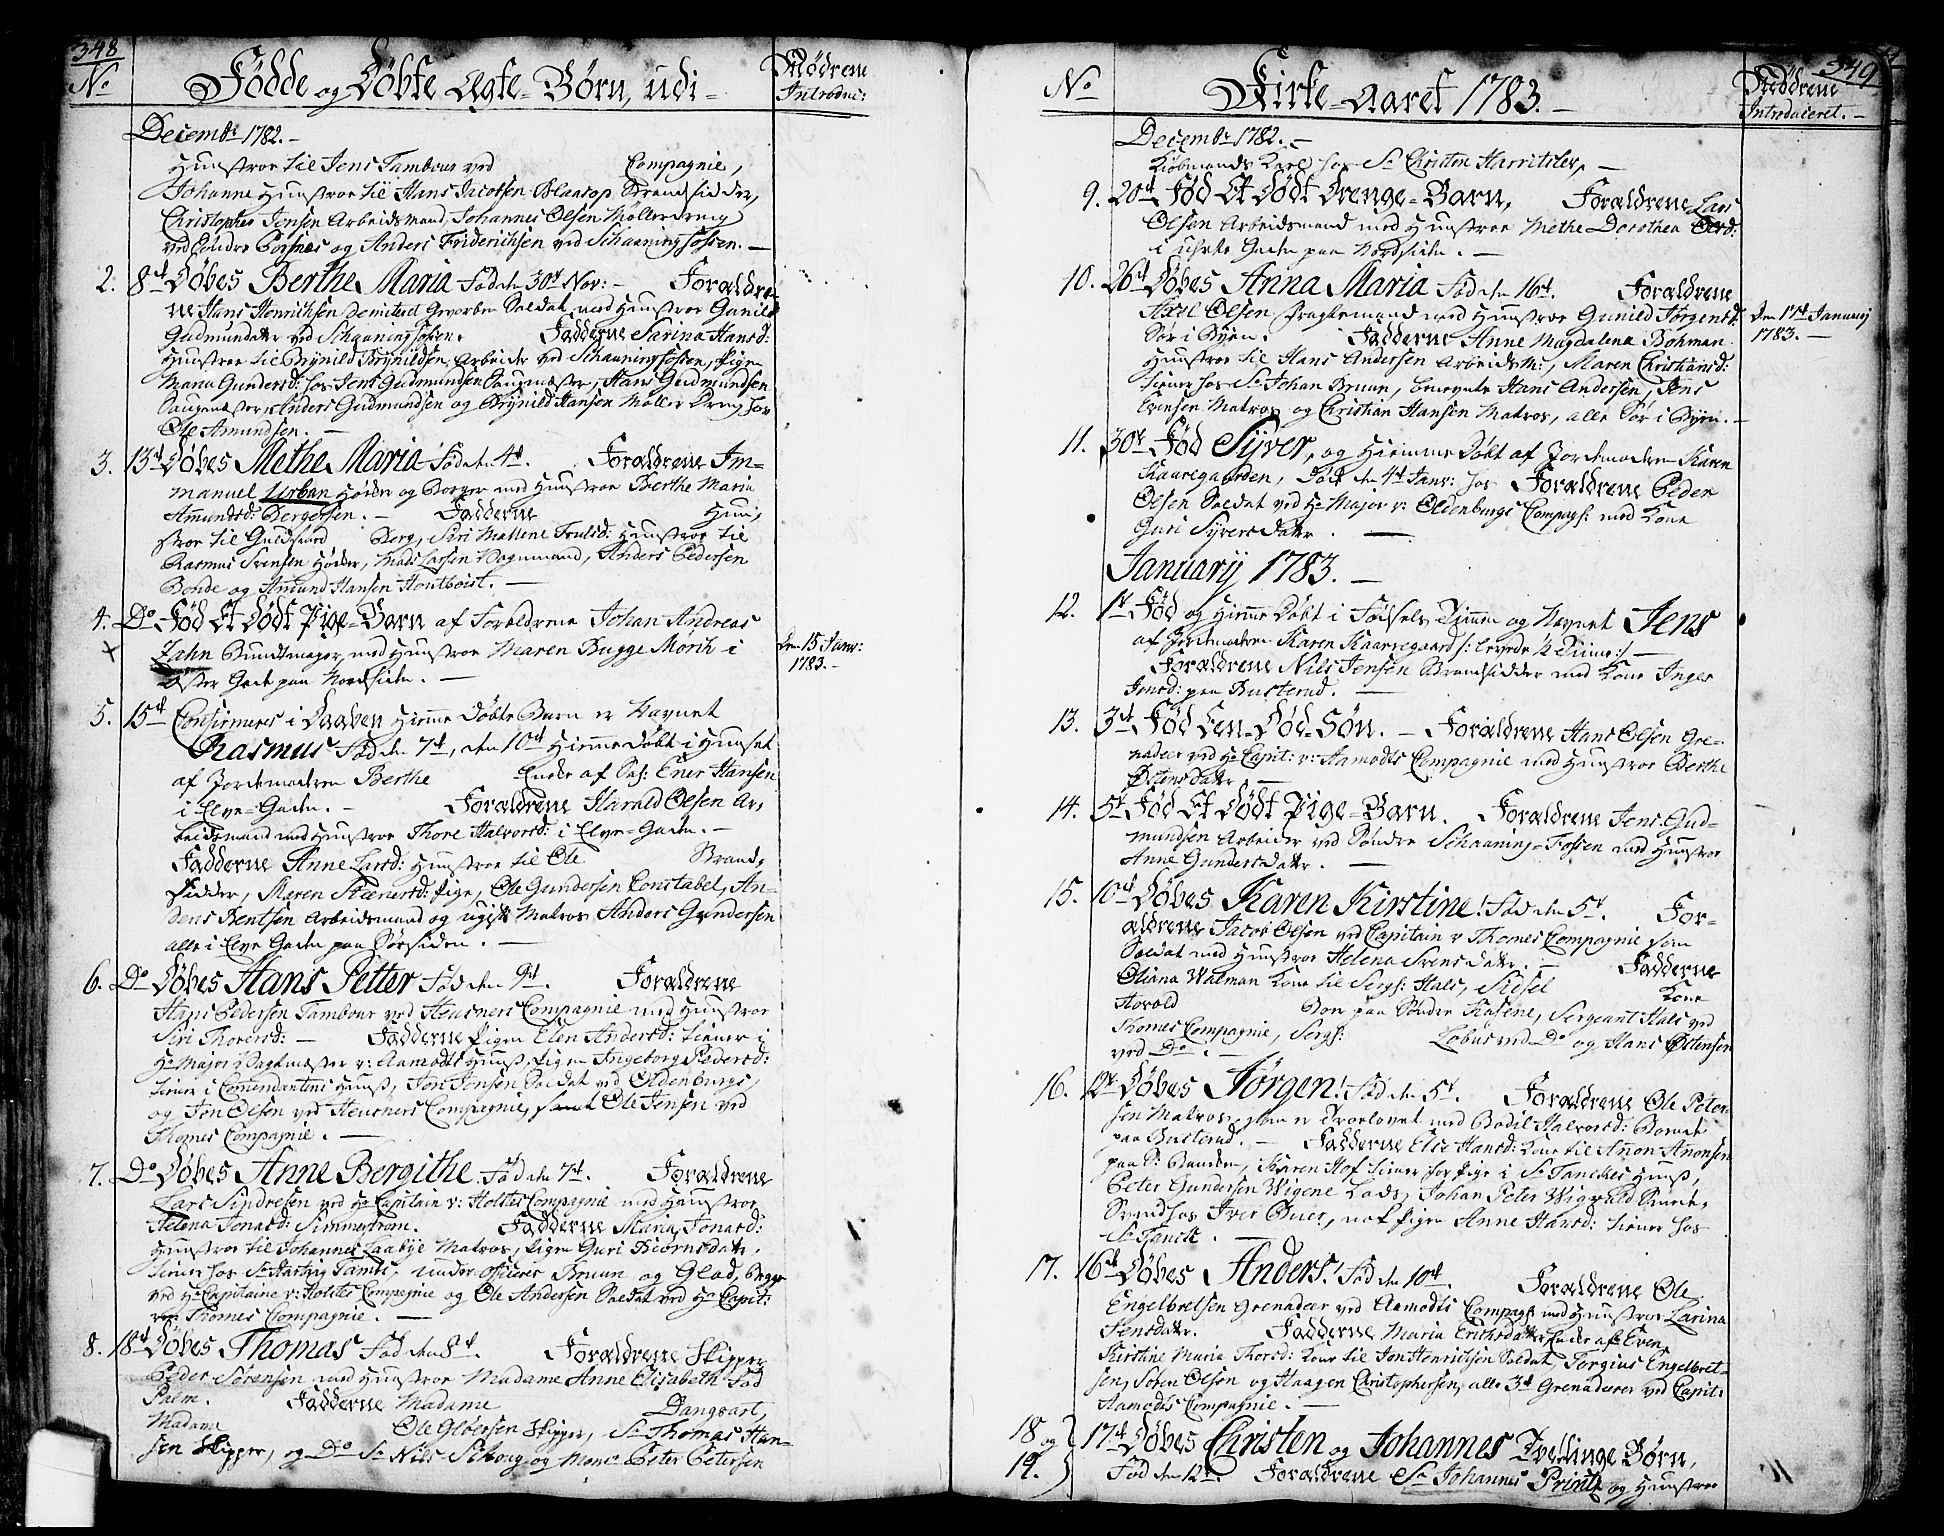 348
No
Fødde og Døbte Ægte-Børn, udi-
Mødrene
Introduc:
Decembr 1782.-
Hunstroe til Jens Tambour ved Compagnie,
Johanne Hunstroe til Hans Jacobsen Blaatop Strandsidder,
Christopher Jensen Arbeidsmand, Johannes Olsen Møllerdreng
ved Søndre og Anders Friderichsen ved Schaaningfossen.-
2. 8de Døbes Berthe Maria Fød den 30te Nov:- Foraldre-
ne Hans Henrichsen Demitered Gevorben Soldat med Hunstroe Gunild
Gudmundsdatter ved Schaaningfossen. Fadderne Sarina Hansd:
Hunstroe til Brynild Brynildsen Arbeider ved Schaaningfossen, Pigen
Maria Gundersd: hos Jens Gudmundsen Saugmester, Hans Gudmundsen
Saugmester, Anders Gudmundsen og Brynild Hansen Møller Dreng hos
Ole Amundsen.-
3. 13de Døbes Methe Maria Fød den 4de. Foraldrene Im-
manuel Urban Høker og Borger med Hunstroe Berthe Maria
Amundsd: Bergersen.- Fadderne Hun-
stroe til Guldsmed Berg, Siri Mallene Truelsd: Hunstroe til
Rasmus Svensen Høcker, Mads Larsen Vognmand, Anders Pedersen
Bonde og Amund Hansen Hautboist.-
4. Do Fød Et Dødt Pige-Barn af Foraldrene Johan Andreas
Zahn Bundtmager med Hunstroe Maren Bugge Mørch i
Øster Gade paa Nordsiden.-
Den 15 Janv:
1783.-
5. 15de Confirmeres i Daaben Hiemme Døbte Barn er Navnet
Rasmus Fød den 7de, den 10de Hiemmedøbt i Hunset
af Jordemoderen Berthe Encke af Sal: Ener Hansen
i Elve-Gaden.- Foraldrene Harald Olsen Ar-
beidsmand med Hunstroe Thore Halvorsd: i Elve-Gaden.-
Fadderne Anne Larsd: Hunstroe til Ole Brand-
sidder, Maren Steenersd: Pige, Ole Gundersen Constabel, An-
ders Bentsen Arbeidsmand og ugift Matros Anders Gundersen
alle i Elve Gaden paa Sørsiden.-
6. Do Døbes Hans Petter Fød den 9de. Foraldrene
Hans Pedersen Tambour ved Heusners Compagnie med Hunstroe
Siri Thoresd:- Fadderne Pigen Elen Andersd: tiener i
Hr Major Vagtmester v: Aamodts Huus, Pigen Ingeborg Pedersd:
tiener i Comendantens Huus, Jon Jonsen Soldat ved Oldenburgs,
og Jon Olsen ved Heusners Compagnie, samt Ole Jensen ved
Thomes Compagnie.-
7. Do Døbes Anne Bergithe Fød den 7de. Foraldrene
Lars Sindresen ved Hr Capitain v: Holstes Compagnie med Hunstroe
Helena Jonasd: Simmestrøm. Fadderne Maria Jonasd:
Hunstroe til Johannes Laabye Matros, Pigen Guri Biørnsdattr.
tiener hos Sr Hartvig Tambs, under officerer Bruun og Glad, begge
ved Hr Capitaine v: Holstes Compagnie og Ole Andersen Soldat ved Hr Capit:
von Thomes Compagnie.-
8. 18de Døbes Thomas Fød den 8de. Foraldrene Skipper
Peder Sørensen med Hunstroe Madame Anne Elisabeth Fød
Palm. Fadderne Madame Dangaart,
Madame Ole Gløersen Skipper, Sr Thomas Han-
sen Skipper, og Do Sr Nils Seeborg og Monsr Peter Petersen
349
No
Kirke-Aaret 1783.-
Mødrene
Introduceret.-
Decembr 1782.-
Kiøbmands Karl hos Sr Christen Harritslev,-
9. 20de Fød Et Dødt Drenge-Barn, Foraldrene Lars
Olsen Arbeidsmand med Hunstroe Methe Dorothea
i Gaden paa Nordsiden.-
10. 26de Døbes Anna Maria Fød den 16de. Foraldrene
Axel Olsen Fragtemand med Hunstroe Gunild Jørgensd:
Sør i Byen. Fadderne Anne Magdalena Bohman
Hunstroe til Hans Andersen Arbeidsm:, Maren Christiansd:
tiener hos Sr Johan Bruun, benevnte Hans Andersen, Jens
Evensen Matros og Christian Hansen Matros, alle Sør i Byen.-
Den 17de Januarij
1783.-
11. 30te Fød Syver, og Hiemmedøbt af Jordemoderen Karen
Kaaregaarden, Død den 4de Janv: hos Foraldrene Peder
Olsen Soldat ved Hr Major v: Oldenburgs Compag: med Kone
Guri Syvers Dattr.-
Januarij 1783.-
12. 1te Fød og Hiemme Døbt i Fødsels Timen og Navnet Jens
af Jordemoderen Karen Kaaregaard /: levede ½ Time :/-
Foraldrene Nils Jensen Brandsidder med Kone Inger
Jonsd: paa Busterud.-
13. 3de Fød Een Død Søn.- Foraldrene Hans Olsen Gre-
nadeer ved Hr Capit: v: Aamodts Compagnie med Hunstroe Berthe
Østensdattr.-
14. 5te Fød Et Dødt Pige-Barn. Foraldrene Jens Gud-
mundsen Arbeider ved Søndre Schaaning-Fossen med Hunstroe
Anne Gundersdattr.-
15. 10de Døbes Karen Kirstine! Fød den 5te. For-
aldrene Jacob Olsen ved Capitain v Thomes Compagnie som
Soldat med Hunstroe Helena Svens Dattr.- Fadderne
Oliana Walman Kone til Sergt: Hals, Sidsel Kone
Havold Boe paa Søndre Kasene, Sergeant Hals ved
Thomes Compagnie, Sergt: Lobus ved Do og Hans Østensen
ved Do.-
16. 12te Døbes Jørgen! Fød den 5te. Foraldrene Ole Peter-
sen Matros, som er Troelovet med Bodil Halvorsd: Boende
paa Busterud.- Fadderne Else Hansd: Kone til Anon Anonsen
paa Sr Banden, Karen Hof tiener for Pige i Sr Tanckes Huus,
Peter Gundersen Wigene Lods, Johan Peter Wigvald Smede-
Svend hos Iver Buer, nok Pigen Anne Hansd: tiener hos
Sr Tanck.-
17. 16de Døbes Anders! Fød den 10de. Foraldrene Ole
Engelbretsen Grenadeer ved Aamodts Compag: med Hunstroe Larina
Jensdattr. Fadderne Maria Erichsdattr Encke af Even,
Kirstine Maria Thorsd: Kone til Jon Henrichsen Soldat, Torgius Engelbret-
sen, Søren Olsen og Haagen Christophersen, alle 3de Grenaderer ved Capit:
Aamodts Compagnie.-
18 og 19. 17de Døbes Christen og Johannes Tvillinge Børn,
Fød den 12te. Foraldrene Sr Johannes Printz og Hunstroe